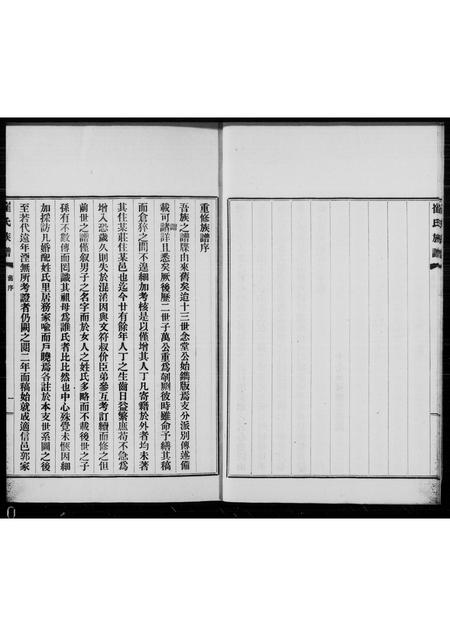 崔氏族譜
重修族譜序
吾族之譜牒由來舊矣迨十三世念堂公始鐫版爲支分派別傳述備
載可謂詳且悉矣厥後歷二世子萬公重爲剞劂彼時雖命予繕其稿
而倉猝之間不遑細加考核是以僅增其人丁凡寄籍於外者均未著
其住某莊住某邑也迄今廿有餘年人丁之生齒日益繁庶苟不急爲
增入恐歲久則失於混淆因與文符叔价臣弟參互考訂續而修之但
前世之譜僅叙男子之名字而於女人之姓氏多略而不載後世之子
孫有不數傳而罔識其祖母爲誰氏者比比然也中心殊覺未愜因細
加採訪凡婚配姓氏里居務家喻而戶曉爲各註於本支世系圖之後
至若代遠年湮無所考證者仍闕之閱二年而稿始就成適信邑郭家
崔氏族譜
舊序
一